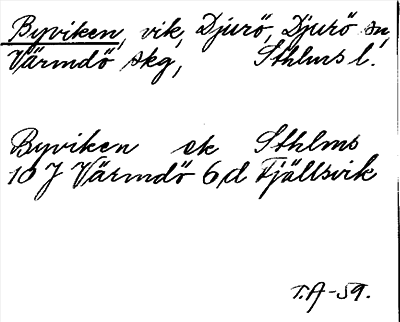 Byviken, vik, Djurö, Djurö sn,
Värmdö skg, Sthlms l.
Byviken ek Sthlms
10 J Värmdö 6 d Fjällsvik
T.A-59.